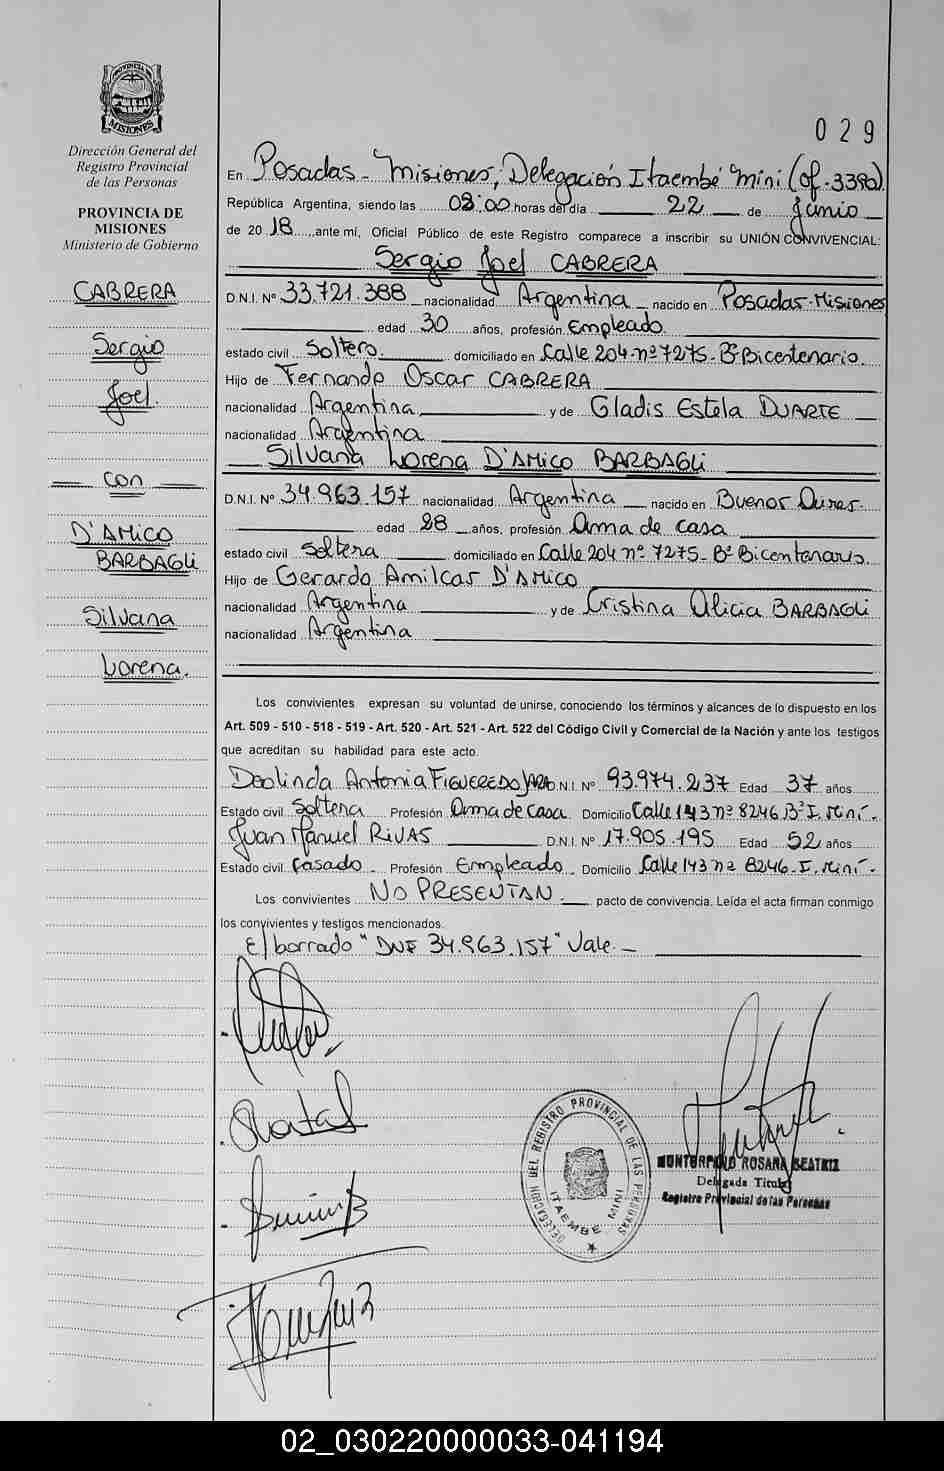 PROVINCIA DE
MISIONES
Dirección General del
Registro Provincial
de las Personas
PROVINCIA DE
MISIONES
Ministerio de Gobierno
CABRERA
Sergio
Joel.
con
D'AMICO
BARBAGLI
Silvana
Lorena.
029
En Posadas - Misiones, Delegación Itaembé Mini (of. 3380)
República Argentina, siendo las 08:00 horas del día 22 de Junio
de 2018 ,ante mí, Oficial Público de este Registro comparece a inscribir su UNIÓN CONVIVENCIAL:
Sergio Joel CABRERA
D.N.I. Nº 33.721.388 nacionalidad Argentina nacido en Posadas-Misiones
edad 30 años, profesión Empleado
estado civil Soltero domiciliado en Calle 204 nº 7275-Bº Bicentenario.
Hijo de Fernando Oscar CABRERA
nacionalidad Argentina y de Gladis Estela DUARTE
nacionalidad Argentina
Silvana Lorena D'AMICO BARBAGLI
D.N.I. Nº 34.963.157 nacionalidad Argentina nacido en Buenos Aires.
edad 28 años, profesión Ama de casa
estado civil Soltera domiciliado en Calle 204 nº 7275-Bº Bicentenario.
Hijo de Gerardo Amilcar D'AMICO
nacionalidad Argentina y de Cristina Alicia BARBAGLI
nacionalidad Argentina
Los convivientes expresan su voluntad de unirse, conociendo los términos y alcances de lo dispuesto en los
Art. 509 - 510 - 518 - 519 - Art. 520 - Art. 521 - Art. 522 del Código Civil y Comercial de la Nación y ante los testigos
que acreditan su habilidad para este acto.
Deolinda Antonia FIGUEREDO JARA D.N.I. Nº 93.974.237 Edad 37 años
Estado civil Soltera Profesión Ama de Casa Domicilio Calle 143 nº 8246 Bº I. Mini.
Juan Manuel RIVAS D.N.I. Nº 17.905.195 Edad 52 años
Estado civil Casado Profesión Empleado Domicilio Calle 143 nº 8246-I. Mini.
Los convivientes NO PRESENTAN pacto de convivencia. Leída el acta firman conmigo
los convivientes y testigos mencionados.
El borrado "DNI 34.963.157" Vale.
DELEGACION DEL REGISTRO PROVINCIAL DE LAS PERSONAS
ITAEMBE MINI
ROSANA BEATRIZ
Delegada Titular
Registro Provincial de las Personas
02_030220000033-041194